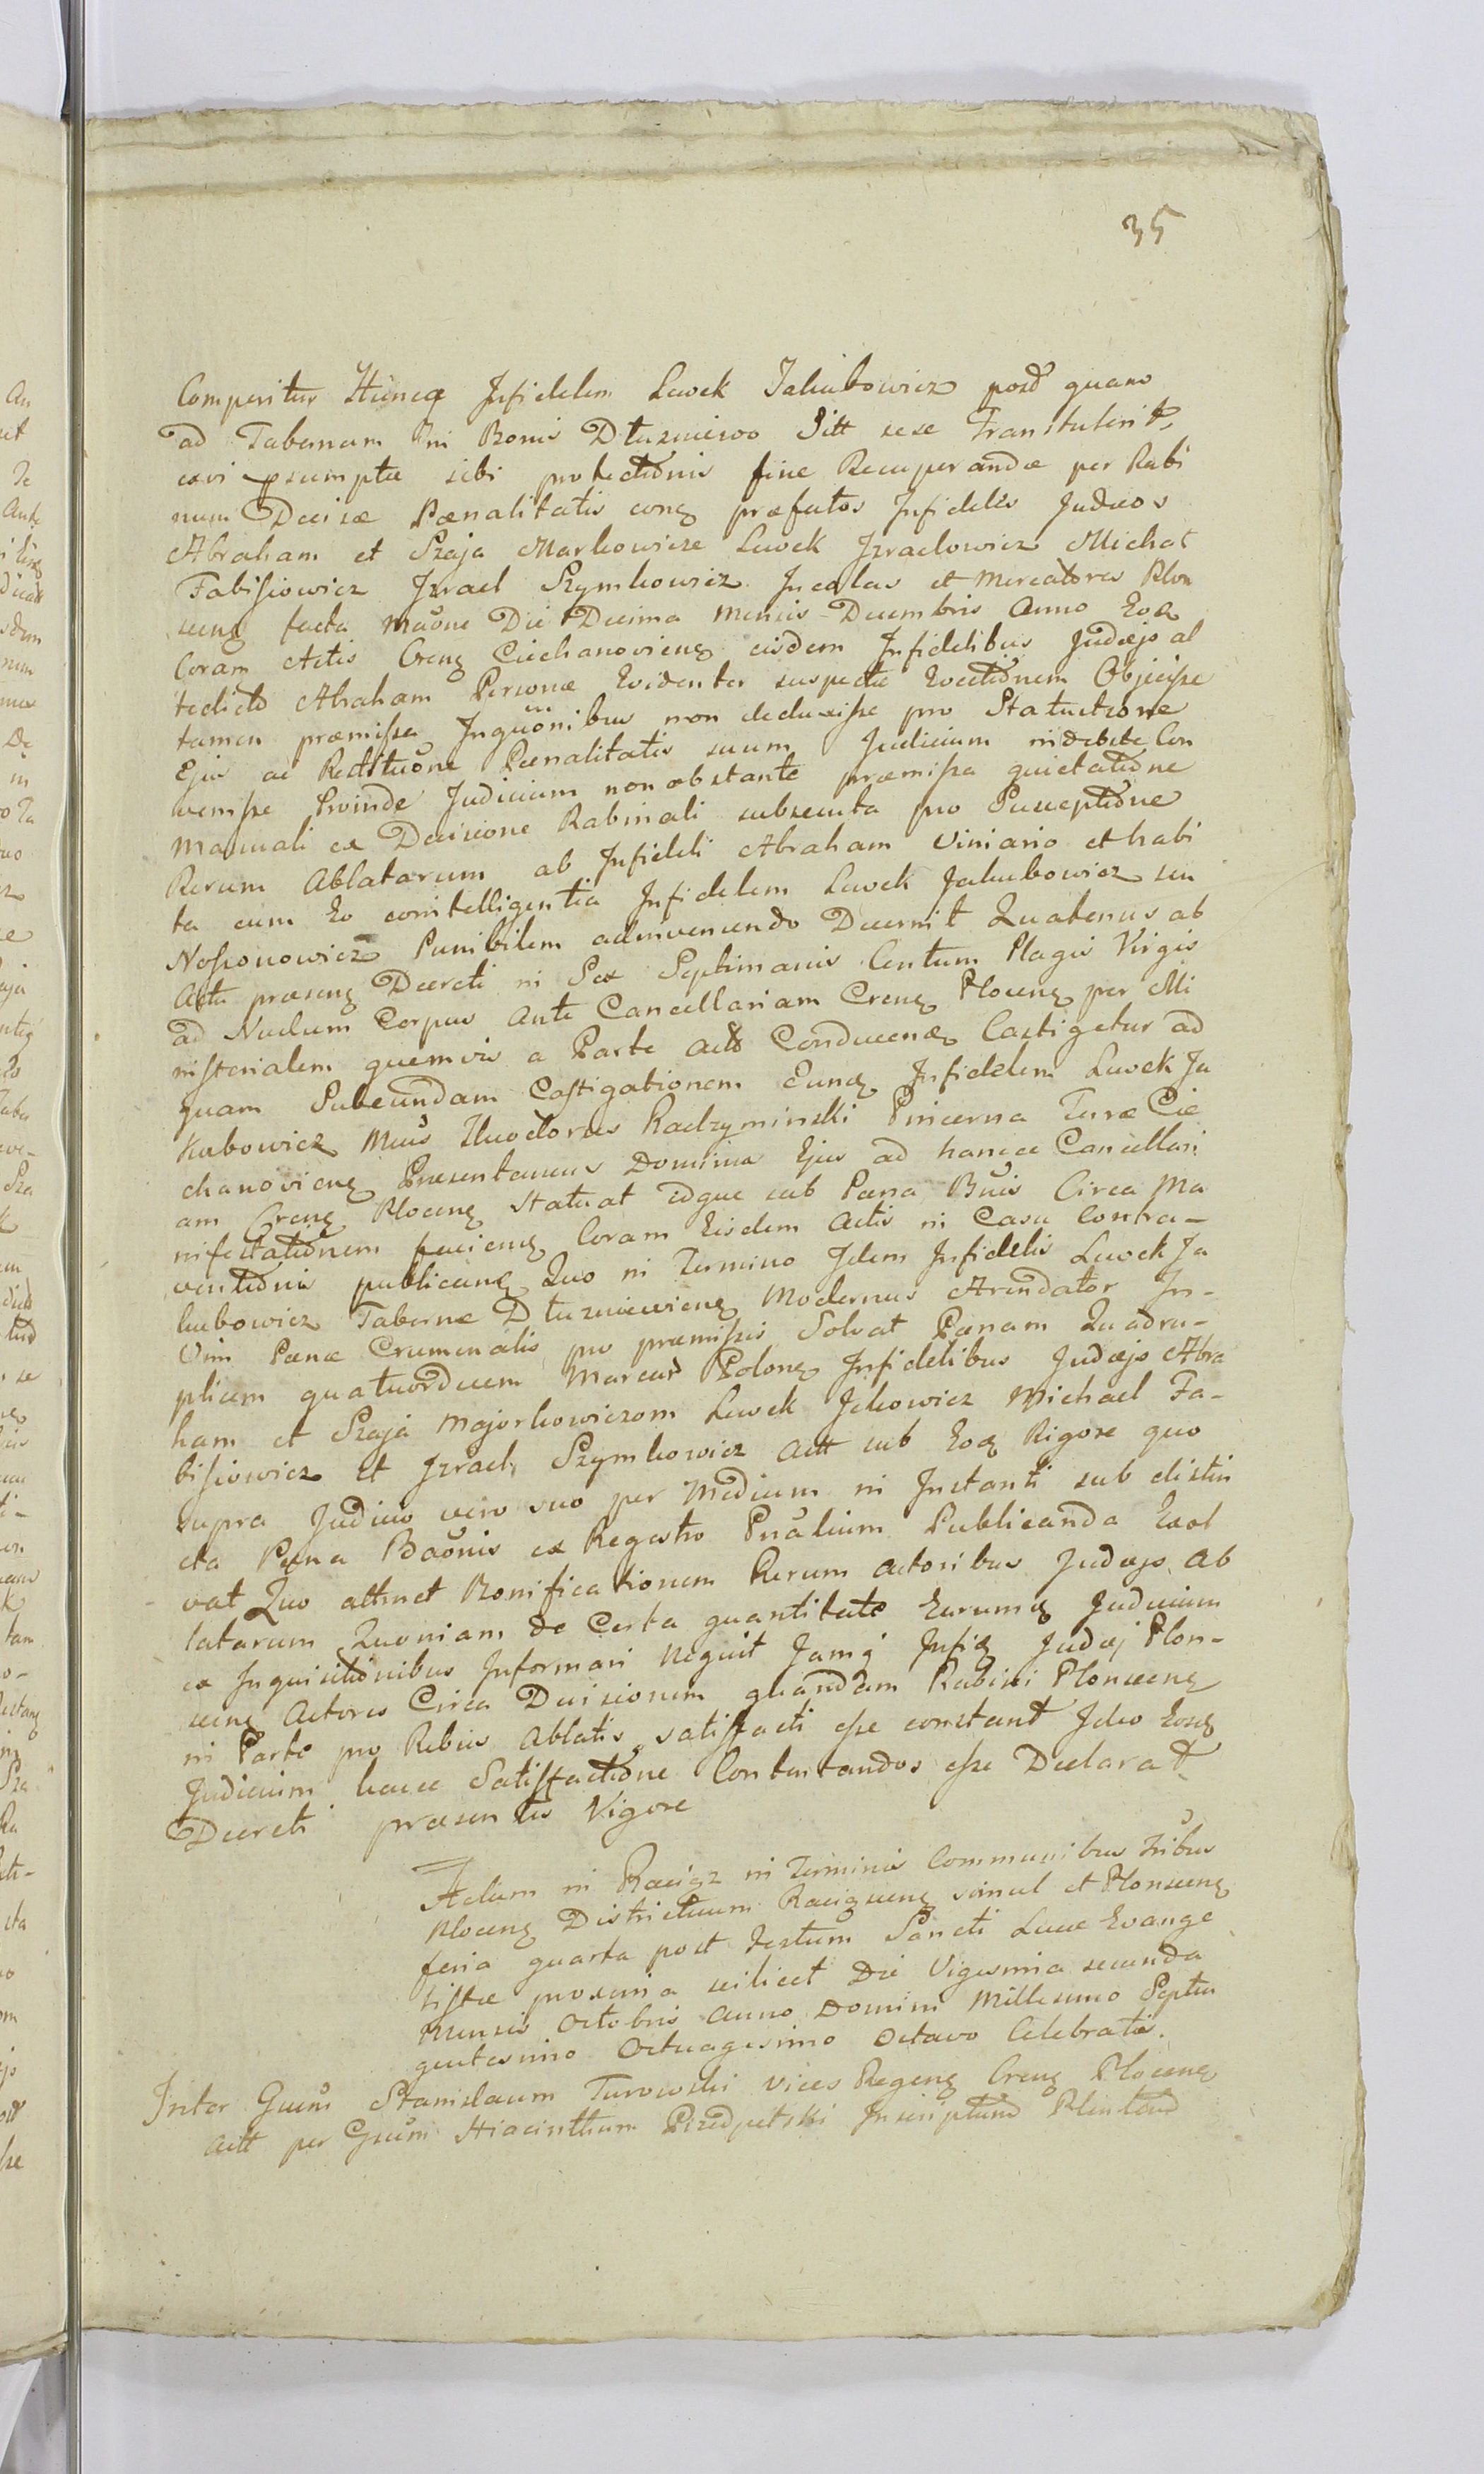 35
Comperitur Huncq Infidelem Lewek Jakubowicz post quam
ad Tabernam in Bonis Dłuzniewo Sitt sese Transtulerit
exvi sumptæ sibi protectionis fine Recuperandæ per Rabi
num Decisæ Pœnalitatis conq præfatos Infideles Judæos
Abraham et Szaja Markowicze Lewek Jzraelowicz Michał
Fabisiowicz Jzrael Szymkowicz Incolas et Mercatores Plon
scenq facta Mãone Die Decima Mensis Decembris Anno Eoq
Coram Actis Crenq Ciechanovienq eisdem Infidelibus Judæjs al
tedicto Abraham Personæ Evidenter suspectæ Evectionem Objecisse
tamen præmissa Inquonibus non deduxisse pro Statuitione
Ejus ac Restituõne Pœnalitatis suum Judicium indebite Con
venisse Proinde Judicium non obstante præmissa quietatione
Manuali ex Decisione Rabinali subsecuta pro Susceptione
Rerum Ablatarum ab Infideli Abraham Viniario et habi
ta cum Eo conitelligentia Infidelem Lewek Jakubowicz seu
Nosonowicz Punibilem adinveniendo Decernit Quatenus ab
Actu præsenq Decreti in Sex Septimanis Centum Plagis Virgis
ad Nudum Corpus Ante Cancellariam Crenq Plocenq per Mi
nisterialem quemvis a Parte actõ Conducenq Castigetur ad
quam Subeundam Castigationem Eunq Infidelem Lewek Ja
kubowicz Mcus Theodorus Radzyminski Pincerna Terræ Cie
chanovienq Præsentaneus Dominus Ejus ad hance Cancellari
am Crenq Plocenq statuat idque sub Pœna Bnis Circa Ma
nifestationem facienq Coram Eisdem Actis in Casu Contra-
ventionis publicanq Quo in Termino Idem Infidelis Lewek Ja
kubowicz Tabernæ Dłuzniewienq Modernus Arendator In-
Vim Pœnæ Crumenalis pro præmissis Solvat Pœnam Quadru-
plicem quatuordecem Marcar Polonq Infidelibus Judæjs Abra
ham et Szaja Majorkowiczom Lewek Jckowicz Michael Fa-
bisiowicz et Jzrael Szymkowicz Actt sub Eoq Rigore quo
supra Judicio vero suo per Medium in Instanti sub distin
cta Pœna Bãonis ex Regestro Pnalium Publicanda Exol
vat Quo attinet Bonificationem Rerum Actoribus Judæjs Ab
latarum Quoniam de Certa quantitate Earumq Judicium
ex Inquisitionibus Informari Nequit Jamq Infiq Judæj Plon-
scenq Actores Circa Decisionem quandam Rabini Plonscenq
in Parte pro Rebus Ablatis satisfacti esse constant Ideo Eosq
Judicium hacce Satisfactione Contentandos esse Declarat
Decreti præsentis Vigore
Actum in Raciąz in Terminis Communibus Tribus
Plocenq Districtuum Raciąscenq simul et Plonscenq
feria quarta post Festum Sancti Lucæ Evange
listæ proxima scilicet Die Vigesima secunda
Mensis Octobris Anno Domini Millesimo Septin
gentesimo Octuagesimo Octavo Celebratis.
Inter Gnum Stanislaum Turowski vices Regenq Crenq Plocenq
Actt per Gnum Hiacinthum Przedpełski Inscriptum